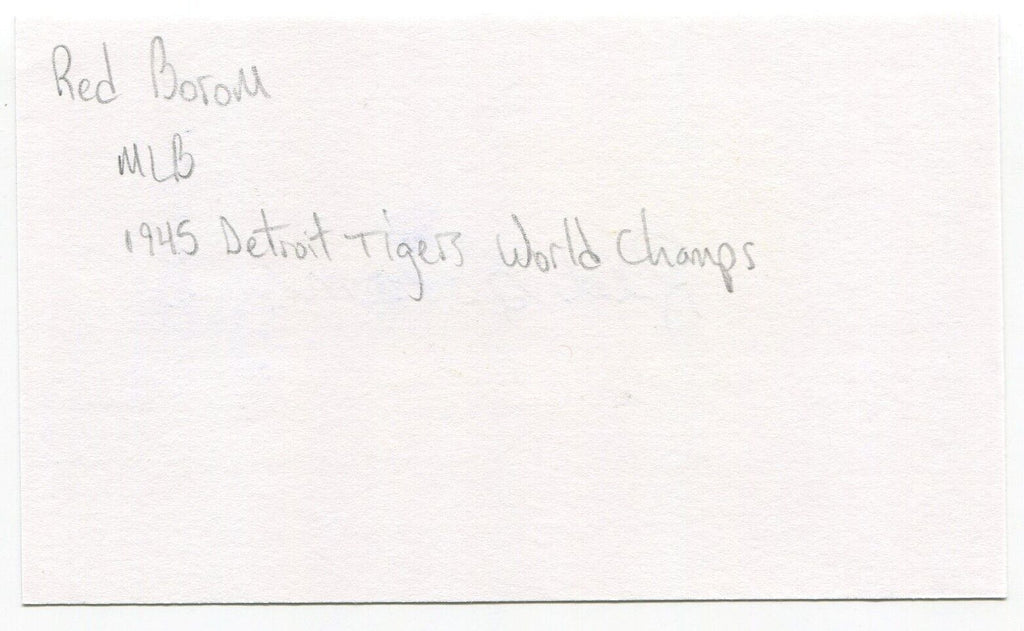 Red Borom
MLB
1945 Detroit Tigers World Champs